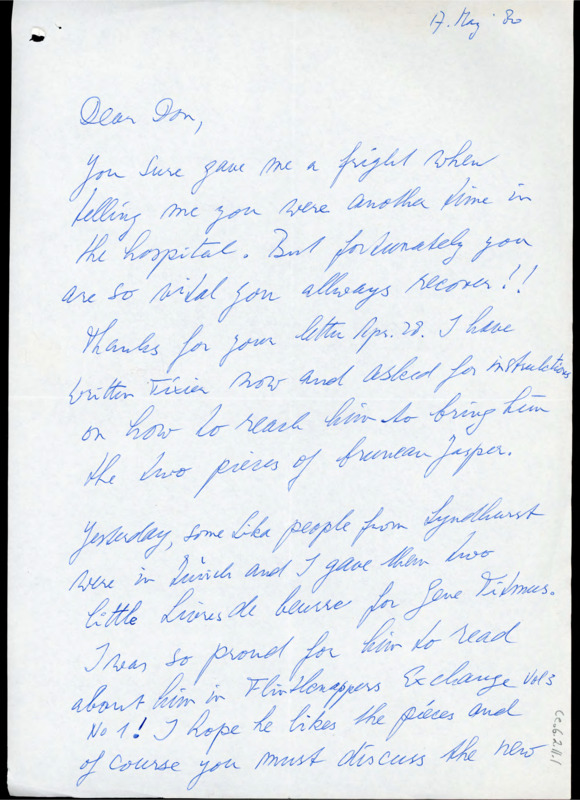 17. May 80
Dear Don,
You sure gave me a fright when
telling me you were another time in
the hospital. But fortunately you
are so vital you allways recover!!
Thanks for your letter Apr. 28. I have
written Tixier now and asked for instructions
on how to reach him to bring him
the two pieces of bruneau Jasper.
Yesterday, some Sika people from Lyndhurst
were in Zürich and I gave them two
little Livres de beurre for Gene Titmus.
I was so proud for him to read
about him in Flintknappers Exchange Vol 3
No 1! I hope he likes the pieces and
of course you must discuss the new
CC.6.2.11.1